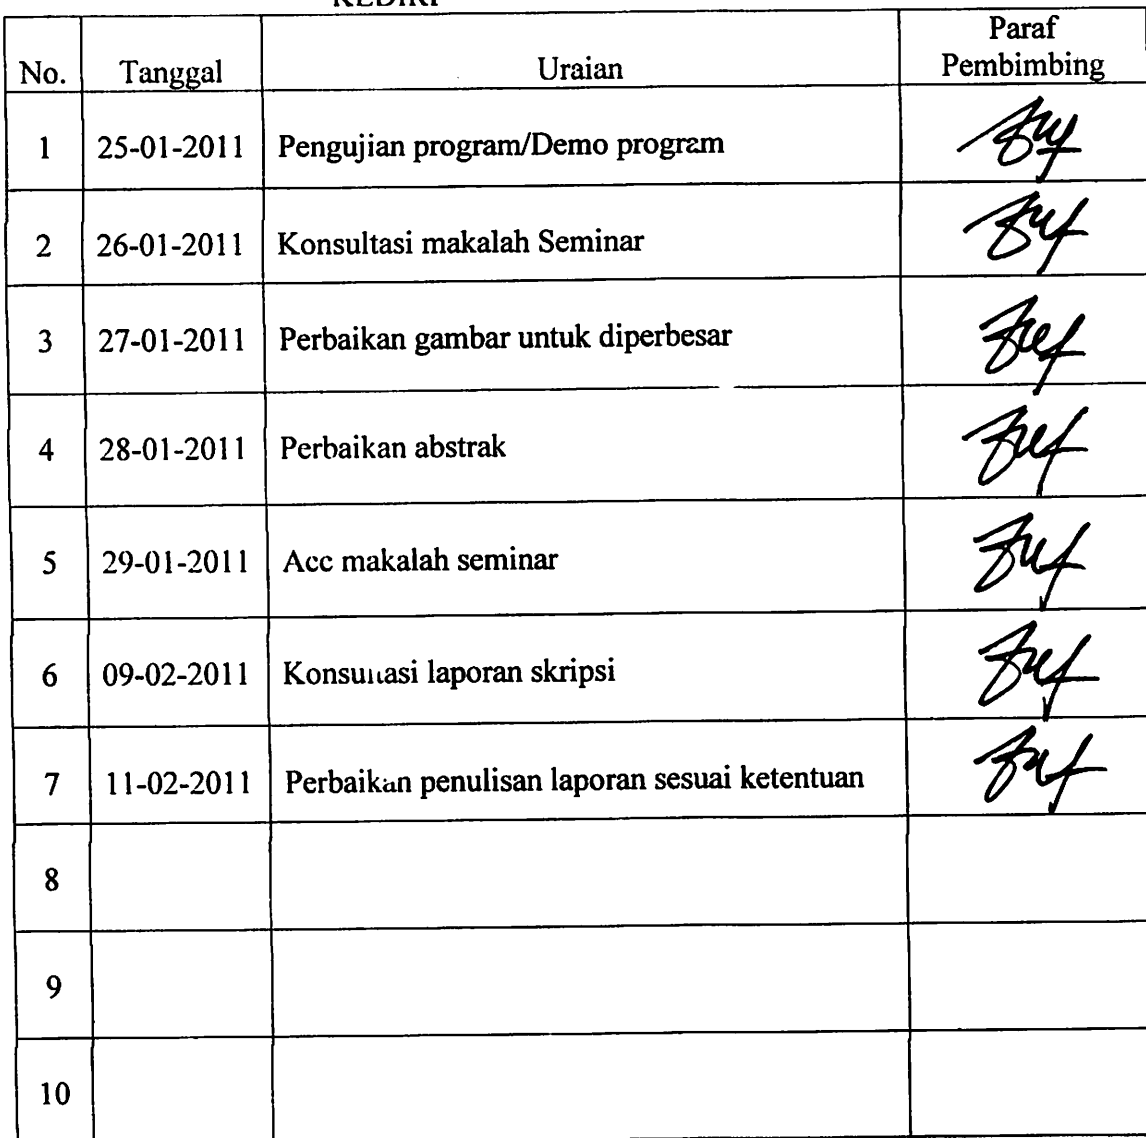 KEDIRI
No. Tanggal Uraian Paraf Pembimbing
1 25-01-2011 Pengujian program/Demo program
2 26-01-2011 Konsultasi makalah Seminar
3 27-01-2011 Perbaikan gambar untuk diperbesar
4 28-01-2011 Perbaikan abstrak
5 29-01-2011 Acc makalah seminar
6 09-02-2011 Konsultasi laporan skripsi
7 11-02-2011 Perbaikan penulisan laporan sesuai ketentuan
8
9
10